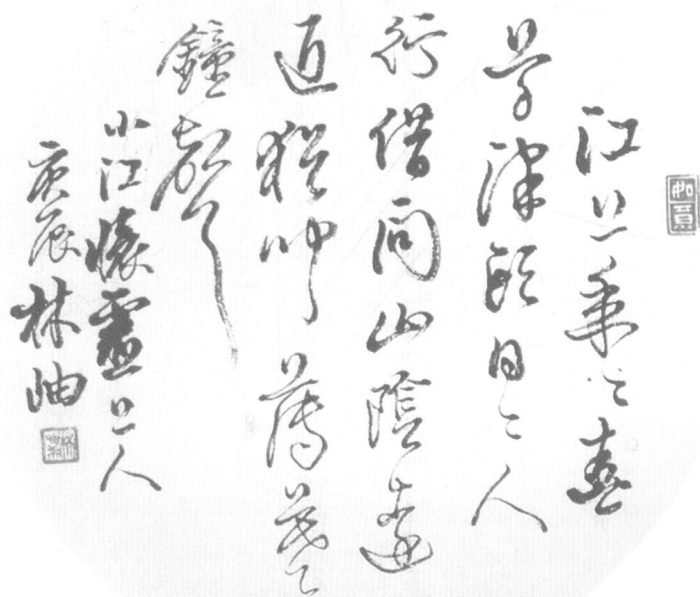 如意
江上年〻春
早津頭日〻人
行借問山陰遠
近猶聞薄暮
鐘聲
小江懷靈上人
庚辰林岫